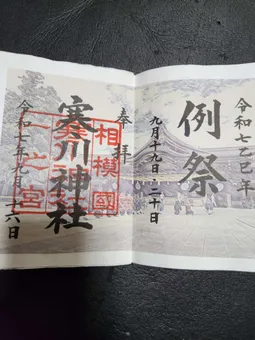 令和七乙巳年
例祭
九月十九日・二十日
奉拝
相模國
寒川神社
一之宮
令和七年九月十六日